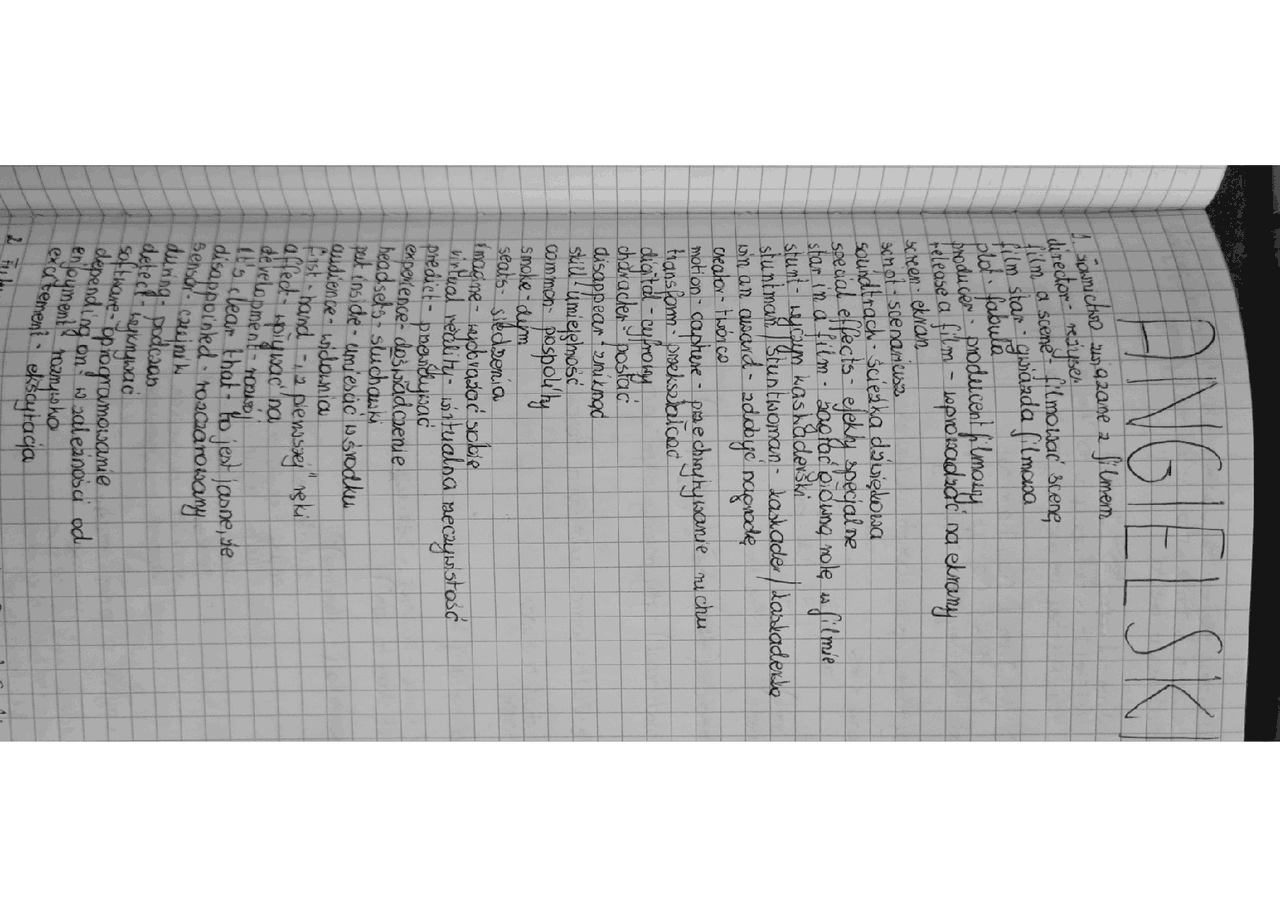 ANGIELSKI
1. Słownictwo związane z filmem
director - reżyser
film a scene - filmować scenę
film star - gwiazda filmowa
plot - fabuła
producer - producent filmowy
release a film - wprowadzać na ekrany
screen - ekran
script - scenariusz
soundtrack - ścieżka dźwiękowa
special effects - efekty specjalne
star in a film - zagrać główną rolę w filmie
stunt - wyczyn kaskaderski
stuntman/stuntwoman - kaskader/kaskaderka
win an award - zdobyć nagrodę
creator - twórca
motion-capture - przechwytywanie ruchu
transform - przekształcać
digital - cyfrowy
character - postać
disappear - zniknąć
skill - umiejętność
common - pospolity
smoke - dym
seats - siedzenia
imagine - wyobrażać sobie
virtual reality - wirtualna rzeczywistość
predict - przewidywać
experience - doświadczenie
headsets - słuchawki
put inside - umieścić w środku
audience - widownia
first-hand - „z pierwszej” ręki
affect - wpływać na
development - rozwój
it's clear that - to jest jasne, że
disappointed - rozczarowany
sensor - czujnik
during - podczas
detect - wykrywać
software - oprogramowanie
depending on - w zależności od
enjoyment - rozrywka
excitement - ekscytacja
2